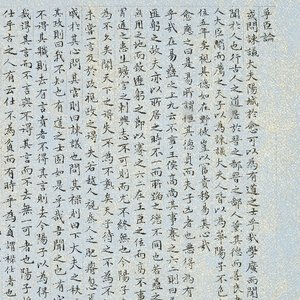 爭臣論
或問諫議大夫陽城於愈可以為有道之士乎哉學廣而聞
聞於人也行古人之道居於晉之鄙晉之鄙人薰其德而善良
人大臣聞而薦之天子以為諫議大夫人皆以為華陽子不
位五年矣視其德如在野彼豈以富貴移易其心哉
愈應之曰是易所謂恆其德貞而夫子凶者也惡得為有道
乎哉在易蠱之上九云不事王侯高尚其事蹇之六二則曰
匪躬之故夫亦以所居之時不一而所蹈之德不同也若蠱之
無用之地而致匪躬之節以蹇之六二在王臣之位而高不事
冒進之患生曠官之刺興志不可則而尤不終無也今陽子
為不久矣聞天下之得失不為不熟矣天子待之不為不加
未嘗一言及於政視政之得失若越人視秦人之肥瘠忽焉
戚於其心問其官則曰諫議也問其祿則曰下大夫之秩
其政則曰我不知也有道之士固如是乎哉且吾聞之有官
不得其職則去有言責者不得其言則去今陽子以為得
哉得其言而不言與不得其言而不去無一可者也陽子將
仕乎古之人有云仕不為貧而有時乎為貧謂祿仕者也